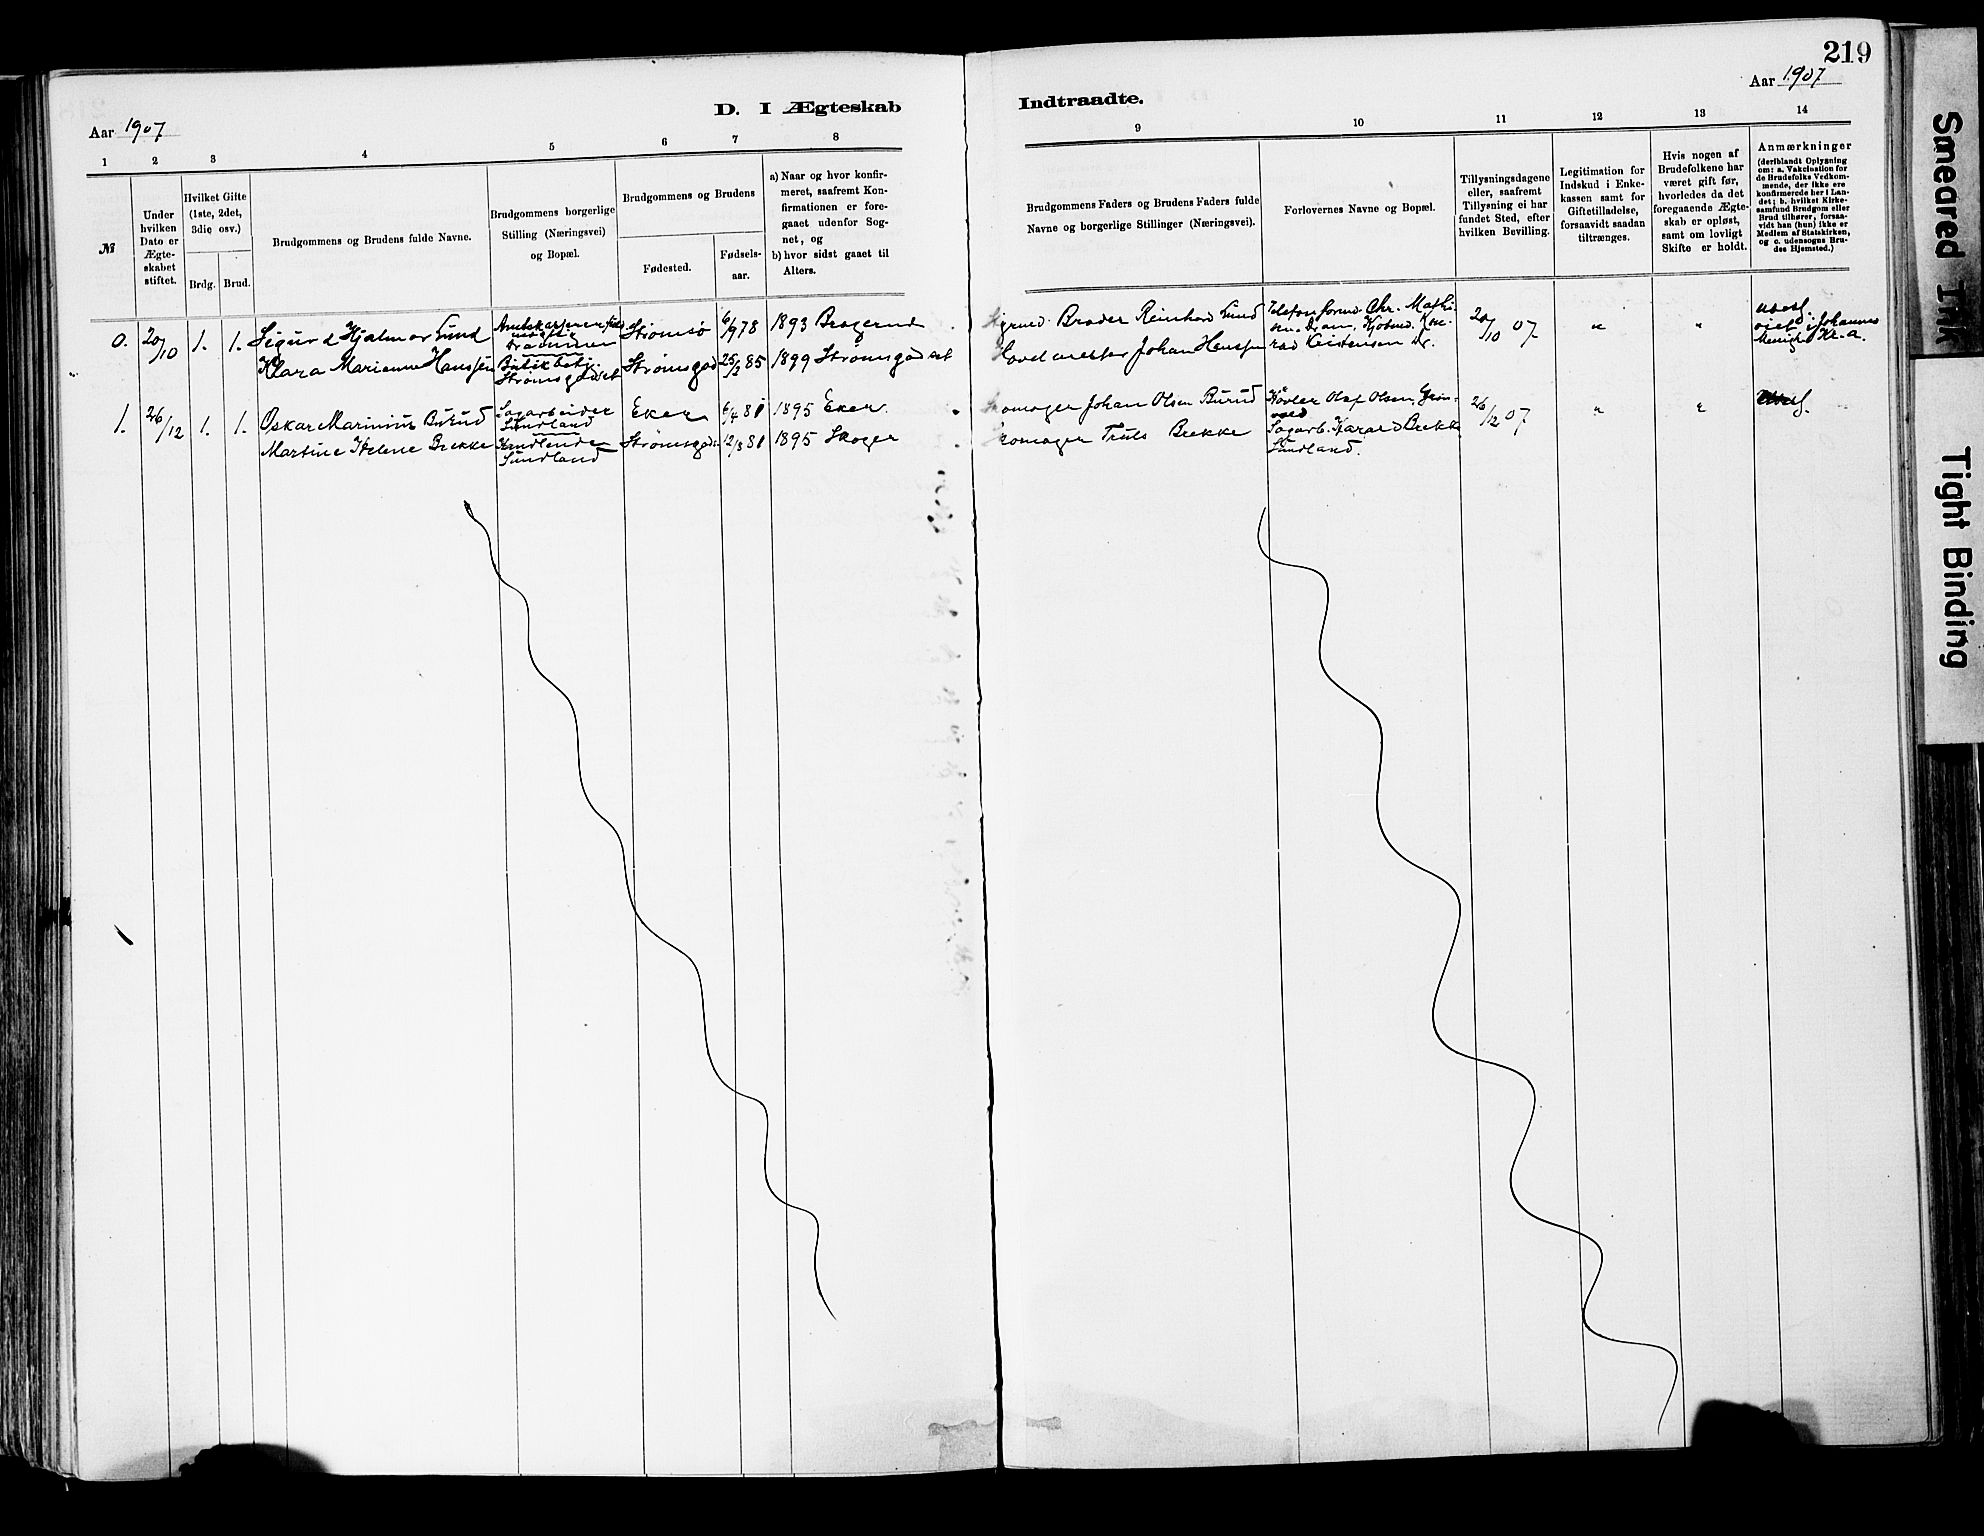 219
Aar 1907
D. I Ægteskab
Indtraadte.
Aar 1907
1 2 3 4 5 6 7 8
9 10 11 12 13 14
№
Under
hvilken
Dato er
Ægte-
skabet
stiftet.
Hvilket Gifte
(1ste, 2det,
3die osv.)
Brdg. Brud.
Brudgommens og Brudens fulde Navne.
Brudgommens borgerlige
Stilling (Næringsvei)
og Bopæl.
Brudgommens og Brudens
Fødested.
Fødsels-
aar.
a) Naar og hvor konfir-
meret, saafremt Kon-
firmationen er fore-
gaaet udenfor Sog-
net, og
b) hvor sidst gaaet til
Alters.
Brudgommens Faders og Brudens Faders fulde
Navne og borgerlige Stillinger (Næringsvei).
Forlovernes Navne og Bopæl.
Tillysningsdagene
eller, saafremt
Tillysning ei har
fundet Sted, efter
hvilken Bevilling.
Legitimation for
Indskud i Enke-
kassen samt for
Giftetilladelse,
forsaavidt saadan
tiltrænges.
Hvis nogen af
Brudefolkene har
været gift før,
hvorledes da det
foregaaende Ægte-
skab er opløst,
samt om lovligt
Skifte er holdt.
Anmærkninger
(deriblandt Oplysning
om: a. Vakcination for
de Brudefolks Vedkom-
mende, der ikke ere
konfirmerede her i Lan-
det; b. hvilket Kirke-
samfund Brudgom eller
Brud tilhører, forsaa-
vidt han (hun) ikke er
Medlem af Statskirken,
og c. udensogns Bru-
des Hjemsted.)
0. 20/10 1. 1. Sigurd Hjalmar Lund
Drammen
Strømsø 6/9 78 1893 Bragernes
Klara Marianne Hanssen
Butikbetj.
Strømsgodset
Strømsgod 25/2 85 1899 Strømsgodset
Brader Reinhard Lund
Johan Hanssen
Telefonformd. Chr. Mathi-
sen. Dram. Kjøbmd. Con-
rad Kristensen Dr.
20/10 07 " "
viet i Johannes
Menigh. Kr.a.
1. 26/12 1. 1. Oskar Marinius Burud
Sagarbeider
Sundland
Eker 6/4 81 1895 Eker.
Martine Helene Brekke
Sundland
Strømsgods. 12/3 81 1895 Skoger
Skomager Johan Olsen Burud
Skomager Truls Brekke
Høvler Olaf Olsen,
Sagarb. Harald Brekke
Sundland.
26/12 07 " "
Smeared Ink
Tight Binding